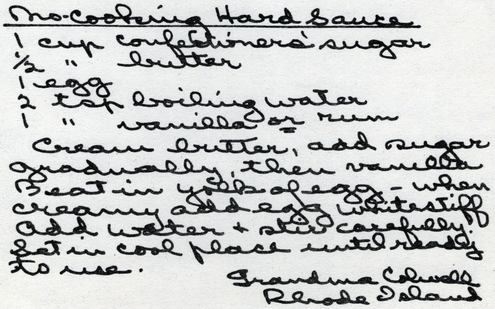 No-Cooking Hard Sauce
1 cup confectioners' sugar
1/2 " butter
1 egg
2 tsp boiling water
1 " vanilla or rum
Cream butter, add sugar
gradually, then vanilla
Beat in yolk of egg - when
creamy add egg white stiff
Add water + stir carefully.
Set in cool place until ready
to use.
Grandma Colwell
Rhode Island